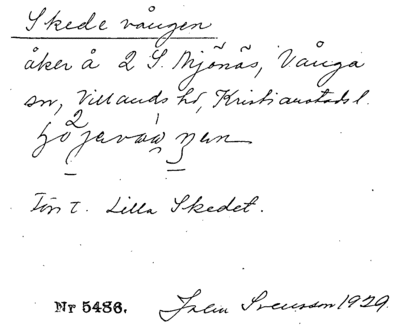 Skede vången
åker å 2 S. Mjönäs, Vånga
sn, Villands hd, Kristianstads l.
Förr t. Lilla Skedet.
Nr 5486. Svensson 1929.